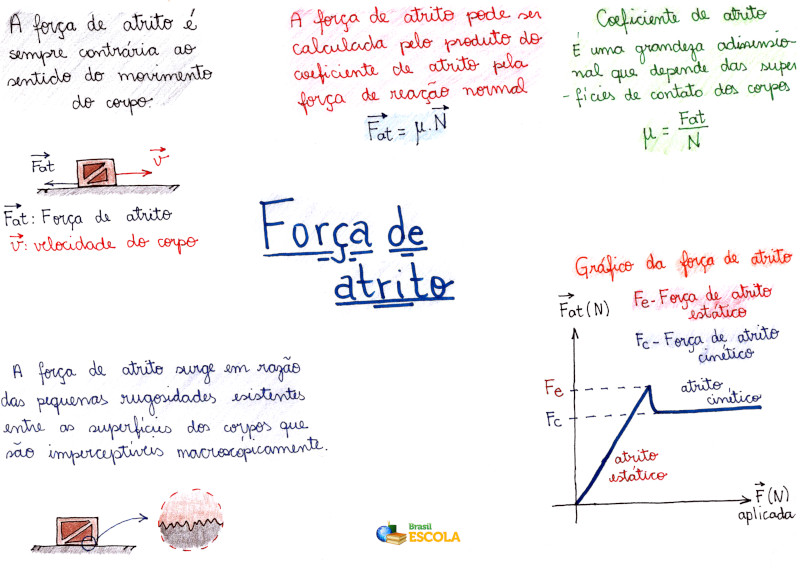 A força de atrito é
sempre contrária ao
sentido do movimento
do corpo.
Fat
v
Fat: Força de atrito
v: velocidade do corpo
A força de atrito pode ser
calculada pelo produto do
coeficiente de atrito pela
força de reação normal
Fat = μ.N
Coeficiente de atrito
É uma grandeza adimensio-
nal que depende das super
-fícies de contato dos corpos
μ = Fat/N
Força de
atrito
A força de atrito surge em razão
das pequenas rugosidades existentes
entre as superfícies dos corpos que
são imperceptíveis macroscopicamente.
Gráfico da força de atrito
Fat (N)
Fe - Força de atrito
estático
Fc - Força de atrito
cinético
Fe
Fc
atrito
cinético
atrito
estático
F (N)
aplicada
Brasil
ESCOLA